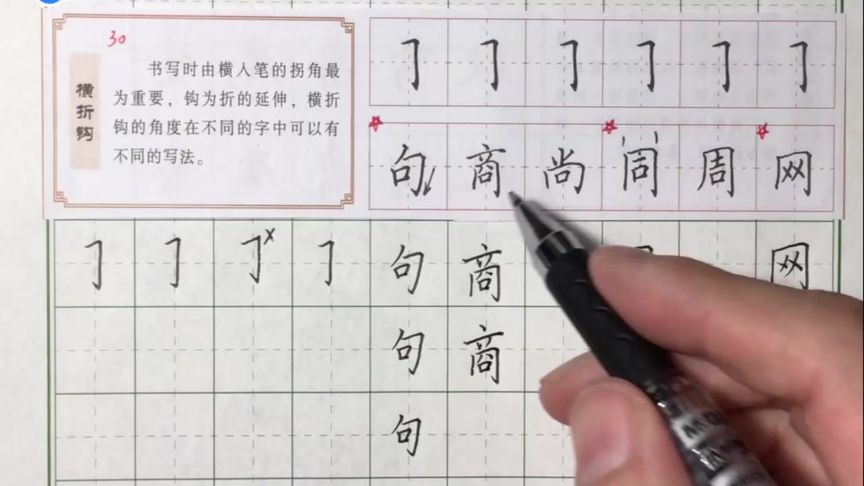 30
横折钩
书写时由横入笔的拐角最
为重要，钩为折的延伸，横折
钩的角度在不同的字中可以有
不同的写法。
㇆ ㇆ ㇆ ㇆ ㇆ ㇆
句 商 尚 同 周 网
㇆ ㇆ ㇆ × ㇆ 句 商 网
句 商
句